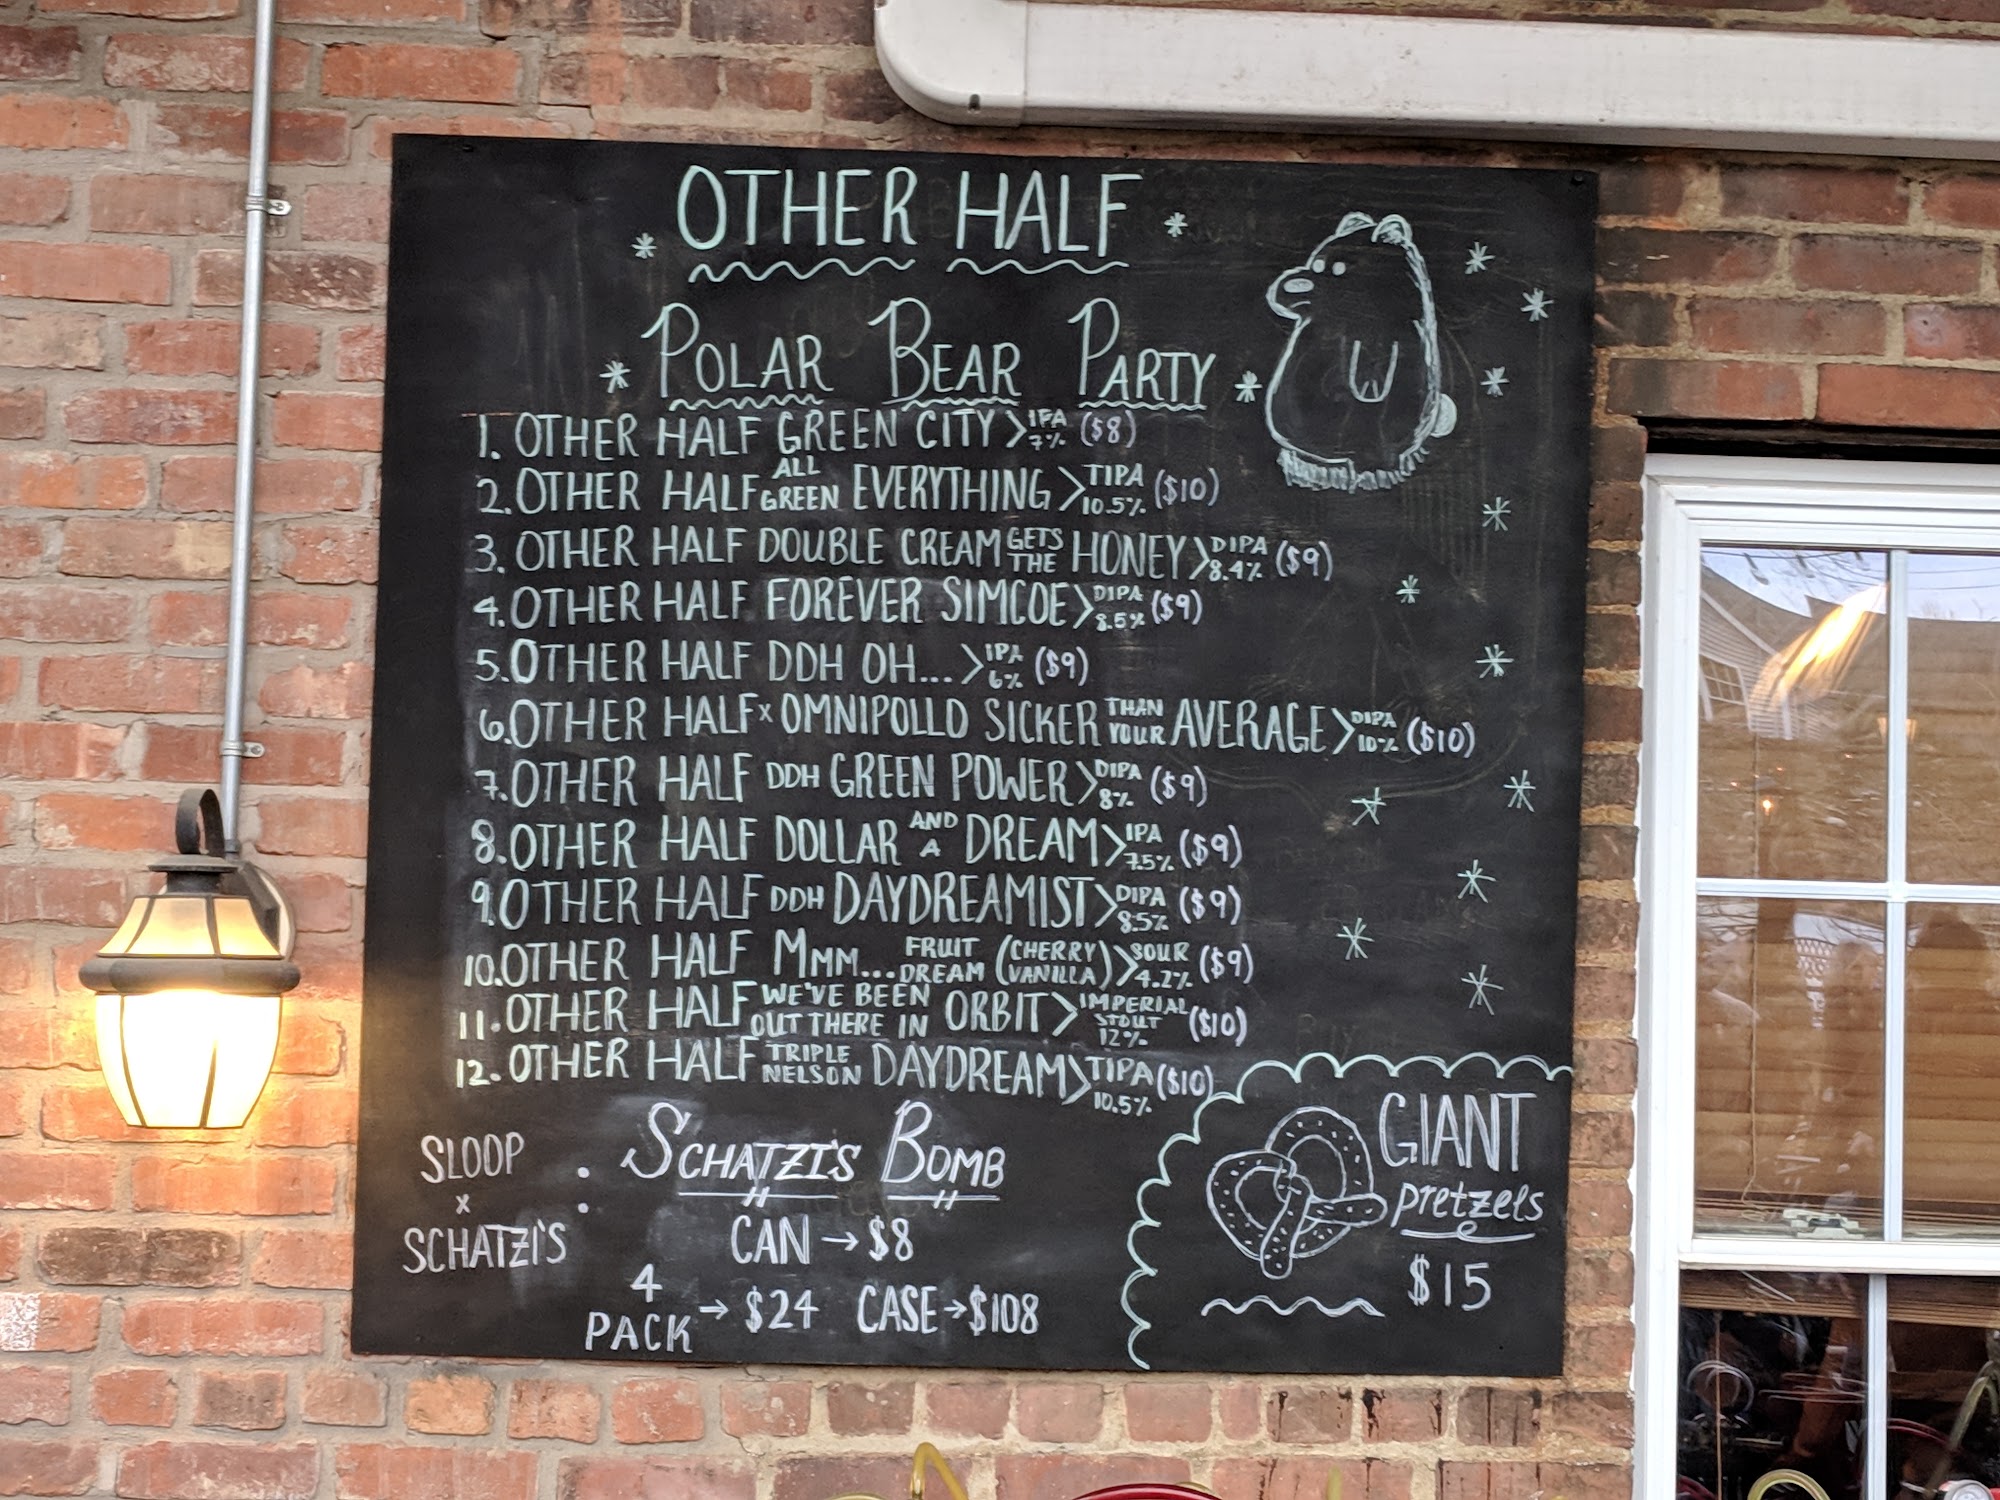 OTHER HALF
POLAR BEAR PARTY
1. OTHER HALF GREEN CITY > IPA 7% ($8)
2. OTHER HALF ALL GREEN EVERYTHING > TIPA 10.5% ($10)
3. OTHER HALF DOUBLE CREAM GETS THE HONEY > DIPA 8.4% ($9)
4. OTHER HALF FOREVER SIMCOE > DIPA 8.5% ($9)
5. OTHER HALF DDH OH... > IPA 6% ($9)
6. OTHER HALF x OMNIPOLLO SICKER THAN YOUR AVERAGE > DIPA 10% ($10)
7. OTHER HALF DDH GREEN POWER > DIPA 8% ($9)
8. OTHER HALF DOLLAR AND A DREAM > IPA 7.5% ($9)
9. OTHER HALF DDH DAYDREAMIST > DIPA 8.5% ($9)
10. OTHER HALF MMM... FRUIT DREAM (CHERRY VANILLA) > SOUR 4.2% ($9)
11. OTHER HALF WE'VE BEEN OUT THERE IN ORBIT > IMPERIAL STOUT 12% ($10)
12. OTHER HALF TRIPLE NELSON DAYDREAM > TIPA 10.5% ($10)
SLOOP
x
SCHATZI'S
: SCHATZI'S BOMB
CAN → $8
4 PACK → $24 CASE → $108
GIANT
pretzels
$15